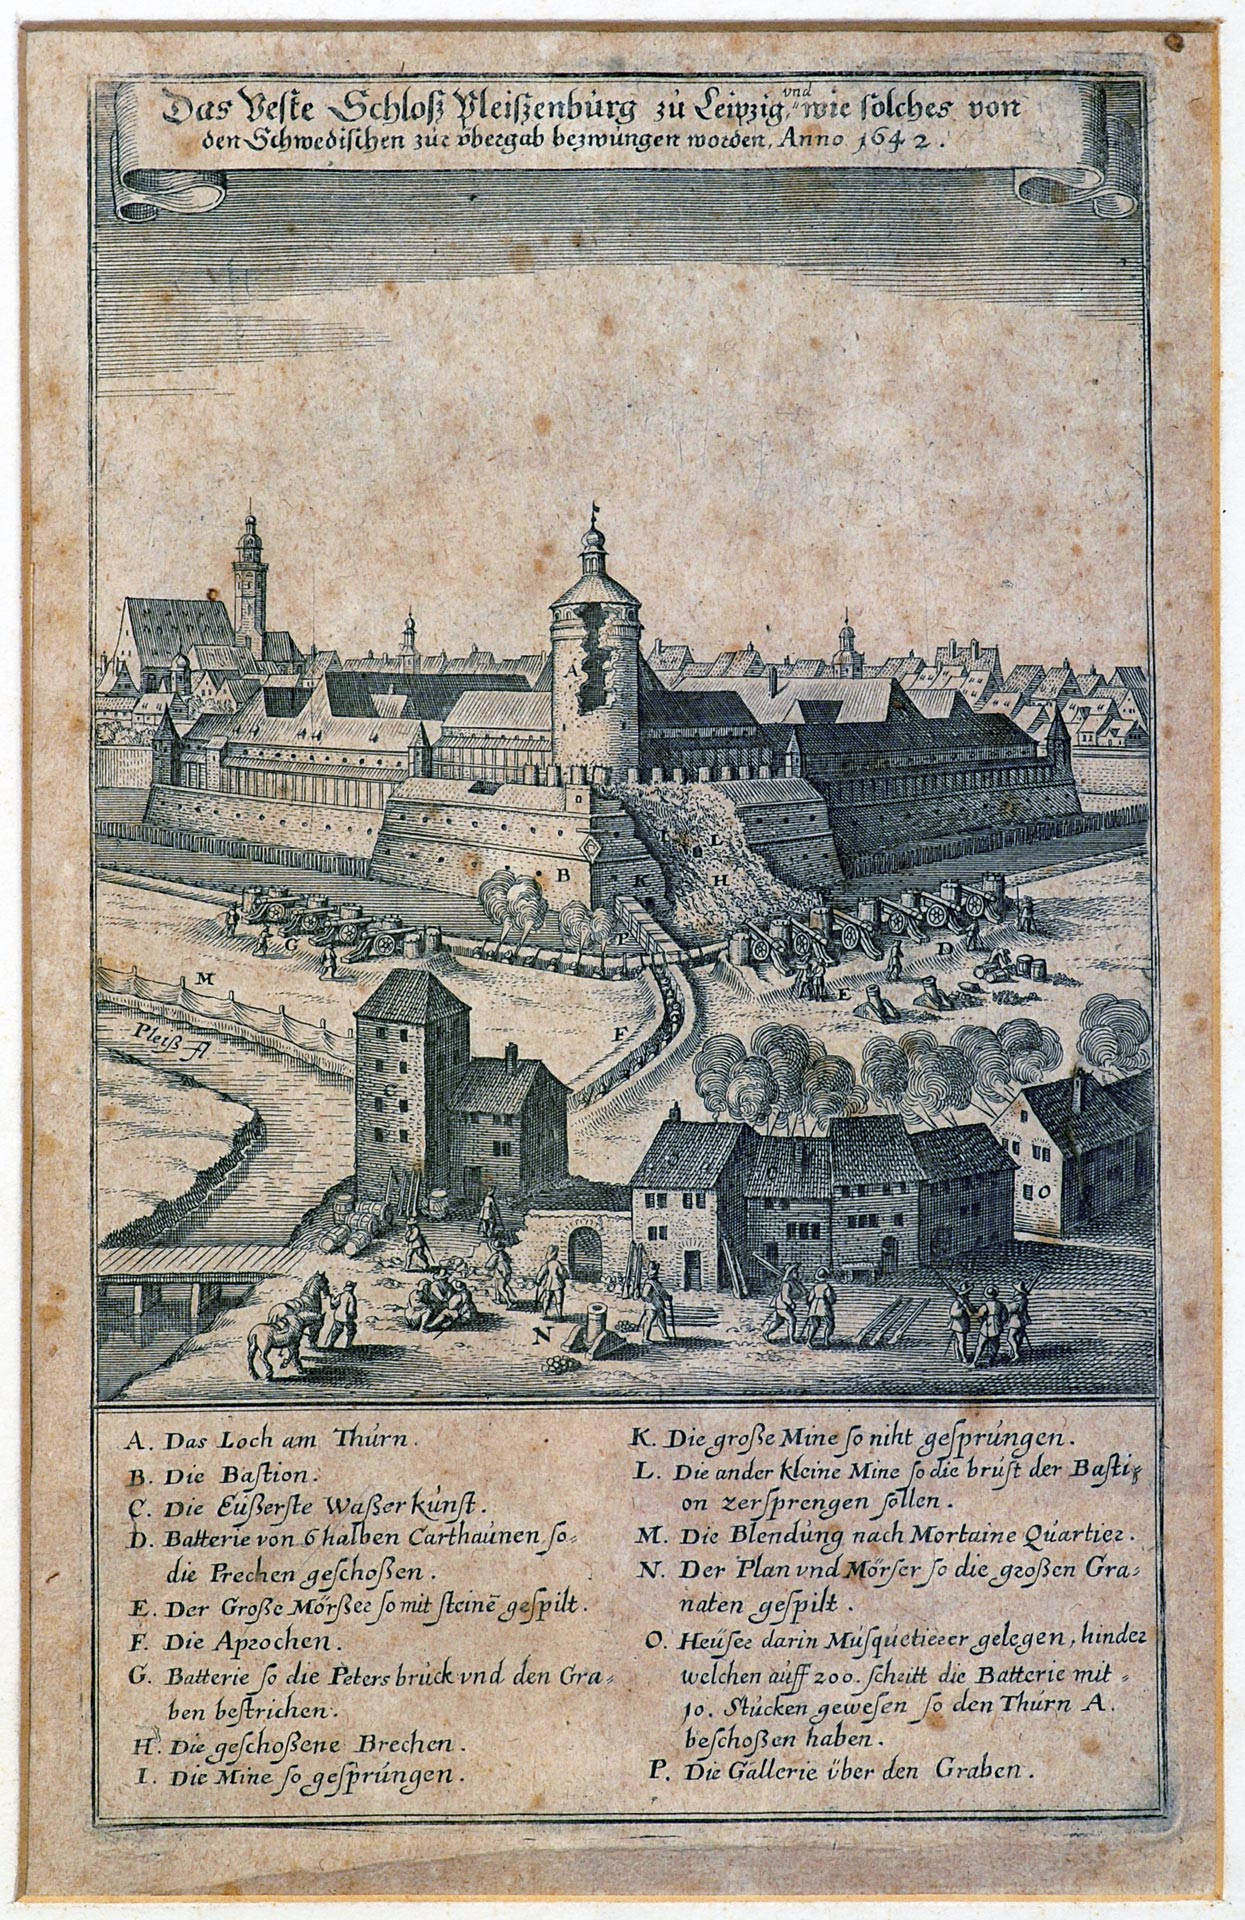 Das Veste Schloß Pleißenburg zu Leipzig, und wie solches von
den Schwedischen zur übergab bezwungen worden, Anno 1642.
A
B
K
I
L
H
P
G
D
E
M
F
Pleiß fl
C
O
N
A. Das Loch am Thurn.
B. Die Bastion.
C. Die Eüßerste Waßerkunst.
D. Batterie von 6 halben Carthaunen, so=
die Prechen geschoßen.
E. Der Große Mörßer so mit steinē gespilt.
F. Die Aprochen.
G. Batterie so die Petersbruck vnd den Gra=
ben bestrichen.
H. Die geschoßene Brechen.
I. Die Mine so gesprungen.
K. Die große Mine so niht gesprungen.
L. Die ander kleine Mine so die brust der Basti=
on zersprengen sollen.
M. Die Blendung nach Mortaine Quartier.
N. Der Plan vnd Mörser so die großen Gra=
naten gespilt.
O. Heüser darin Musquetierer gelegen, hinder
welchen auff 200. schritt die Batterie mit=
10. Stucken gewesen so den Thurn A.
beschoßen haben.
P. Die Gallerie über den Graben.